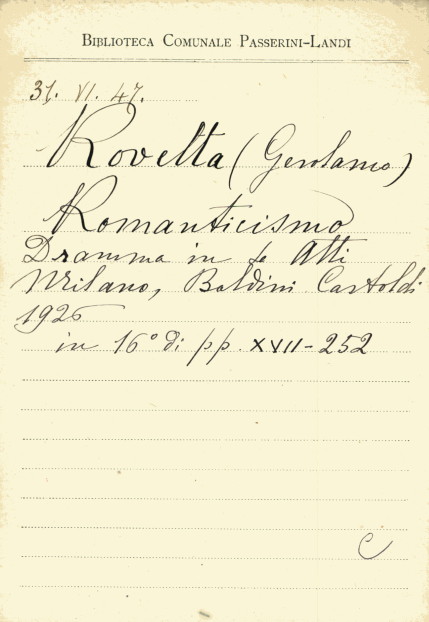 BIBLIOTECA COMUNALE PASSERINI-LANDI
31. VI. 47.
Rovetta (Gerolamo)
Romanticismo
Dramma in 4 Atti
Milano, Baldini Castoldi
1926
in 16° di pp. XVII-252
C